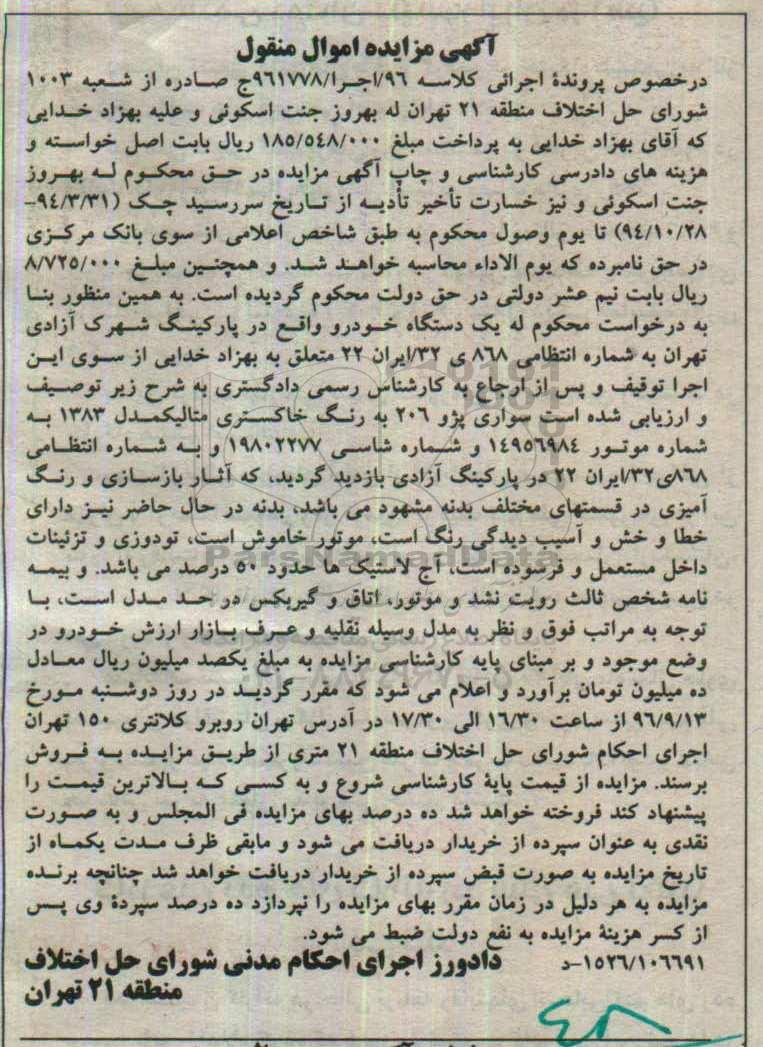 آگهی مزایده اموال منقول
درخصوص پروندهٔ اجرائی کلاسه ۹۶/اجرا/۹۶۱۷۷۸ج صادره از شعبه ۱۰۰۳
شورای حل اختلاف منطقه ۲۱ تهران له بهروز جنت اسکوئی و علیه بهزاد خدایی
که آقای بهزاد خدایی به پرداخت مبلغ ۱۸۵/۵۴۸/۰۰۰ ریال بابت اصل خواسته و
هزینه های دادرسی کارشناسی و چاپ آگهی مزایده در حق محکوم له بهروز
جنت اسکوئی و نیز خسارت تأخیر تأدیه از تاریخ سررسید چک (۹۴/۳/۳۱-
۹۴/۱۰/۲۸) تا یوم وصول محکوم به طبق شاخص اعلامی از سوی بانک مرکزی
در حق نامبرده که یوم الاداء محاسبه خواهد شد. و همچنین مبلغ ۸/۷۲۵/۰۰۰
ریال بابت نیم عشر دولتی در حق دولت محکوم گردیده است. به همین منظور بنا
به درخواست محکوم له یک دستگاه خودرو واقع در پارکینگ شهرک آزادی
تهران به شماره انتظامی ۸۶۸ ی ۳۲/ایران ۲۲ متعلق به بهزاد خدایی از سوی این
اجرا توقیف و پس از ارجاع به کارشناس رسمی دادگستری به شرح زیر توصیف
و ارزیابی شده است سواری پژو ۲۰۶ به رنگ خاکستری متالیکمدل ۱۳۸۳ به
شماره موتور ۱۴۹۵۶۹۸۴ و شماره شاسی ۱۹۸۰۲۲۷۷ و به شماره انتظامی
۸۶۸ی۳۲/ایران ۲۲ در پارکینگ آزادی بازدید گردید، که آثار بازسازی و رنگ
آمیزی در قسمتهای مختلف بدنه مشهود می باشد، بدنه در حال حاضر نیز دارای
خطا و خش و آسیب دیدگی رنگ است، موتور خاموش است، تودوزی و تزئینات
داخل مستعمل و فرسوده است، آج لاستیک ها حدود ۵۰ درصد می باشد. و بیمه
نامه شخص ثالث رویت نشد و موتور، اتاق و گیربکس در حد مدل است، با
توجه به مراتب فوق و نظر به مدل وسیله نقلیه و عرف بازار ارزش خودرو در
وضع موجود و بر مبنای پایه کارشناسی مزایده به مبلغ یکصد میلیون ریال معادل
ده میلیون تومان برآورد و اعلام می شود که مقرر گردید در روز دوشنبه مورخ
۹۶/۹/۱۳ از ساعت ۱۶/۳۰ الی ۱۷/۳۰ در آدرس تهران روبرو کلانتری ۱۵۰ تهران
اجرای احکام شورای حل اختلاف منطقه ۲۱ متری از طریق مزایده به فروش
برسند. مزایده از قیمت پایهٔ کارشناسی شروع و به کسی که بالاترین قیمت را
پیشنهاد کند فروخته خواهد شد ده درصد بهای مزایده فی المجلس و به صورت
نقدی به عنوان سپرده از خریدار دریافت می شود و مابقی ظرف مدت یکماه از
تاریخ مزایده به صورت قبض سپرده از خریدار دریافت خواهد شد چنانچه برنده
مزایده به هر دلیل در زمان مقرر بهای مزایده را نپردازد ده درصد سپردهٔ وی پس
از کسر هزینهٔ مزایده به نفع دولت ضبط می شود.
۱۵۲۶/۱۰۶۶۹۱-د دادورز اجرای احکام مدنی شورای حل اختلاف
منطقه ۲۱ تهران
ParsNamadData